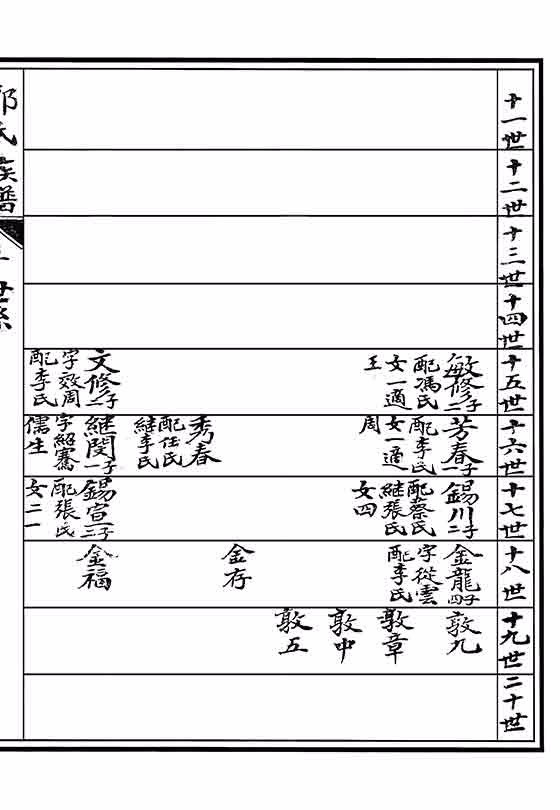 十一世
十二世
十三世
十四世
十五世
敏修二子
配馮氏
女一適
王
文修二子
字效周
配李氏
十六世
芳春一子
配李氏
女一適
周
秀春
配任氏
継李氏
継閔一子
字紹騫
儒生
十七世
錫川二子
配蔡氏
継張氏
女四
錫宣二子
配張氏
女二一
十八世
金龍四子
字從雲
配李氏
金存
金福
十九世
敦九
敦章
敦中
敦五
二十世
氏族譜
世系